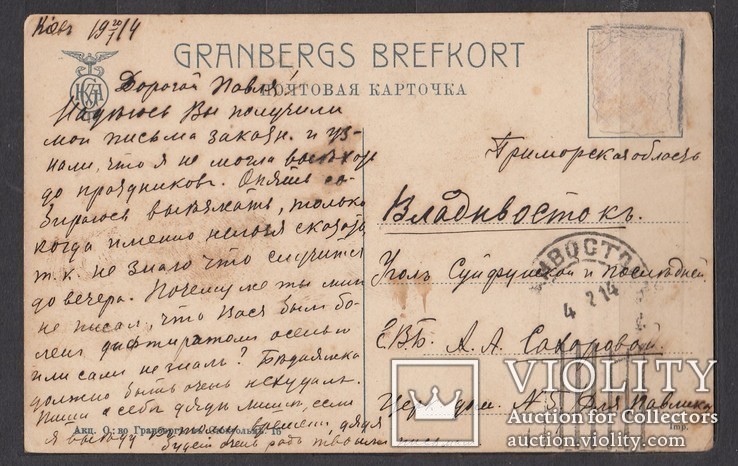 Кіевъ 19 20/I 14
GRANBERGS BREFKORT
ПОЧТОВАЯ КАРТОЧКА
Дорогой Павля!
Надѣюсь Вы получили
мои письма заказн. и уз-
нали, что я не могла выѣхать
до праздниковъ. Опять со-
бираюсь выѣзжать, только
когда именно нельзя сказать
т.к. не знаю что случится
до вечера. Почему же ты мнѣ
не писал, что Вася был бо-
лен дифтиритом осенью
или сами не знали? Бѣдняжка
должно быть очень похудал.
Пиши о себѣ дядѣ Мишѣ, если
я выѣду къ тому времени, дядя
будет очень радъ твоим письмам
Приморская область
Владивостокъ.
Уголъ Суйфунской и Послѣдней
ЕВБ. А. А. Сахаровой.
Церк. дом. № 3. Для Павлика
ИВОСТО
4 2 14
Акц. О-во Гранбергъ въ Стокгольмѣ 16
Imp.
VIOLITY
Auction for Collectors
auction.violity.com